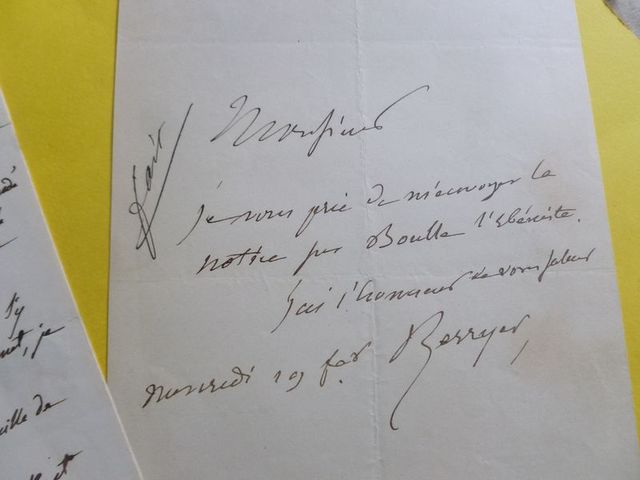 Fait
Monsieur
je vous prie de m'envoyer la
notice sur Boulle l'Ebéniste.
J'ai l'honneur de vous saluer
mercredi 19 fer Berryer,
s'y
je
ille de